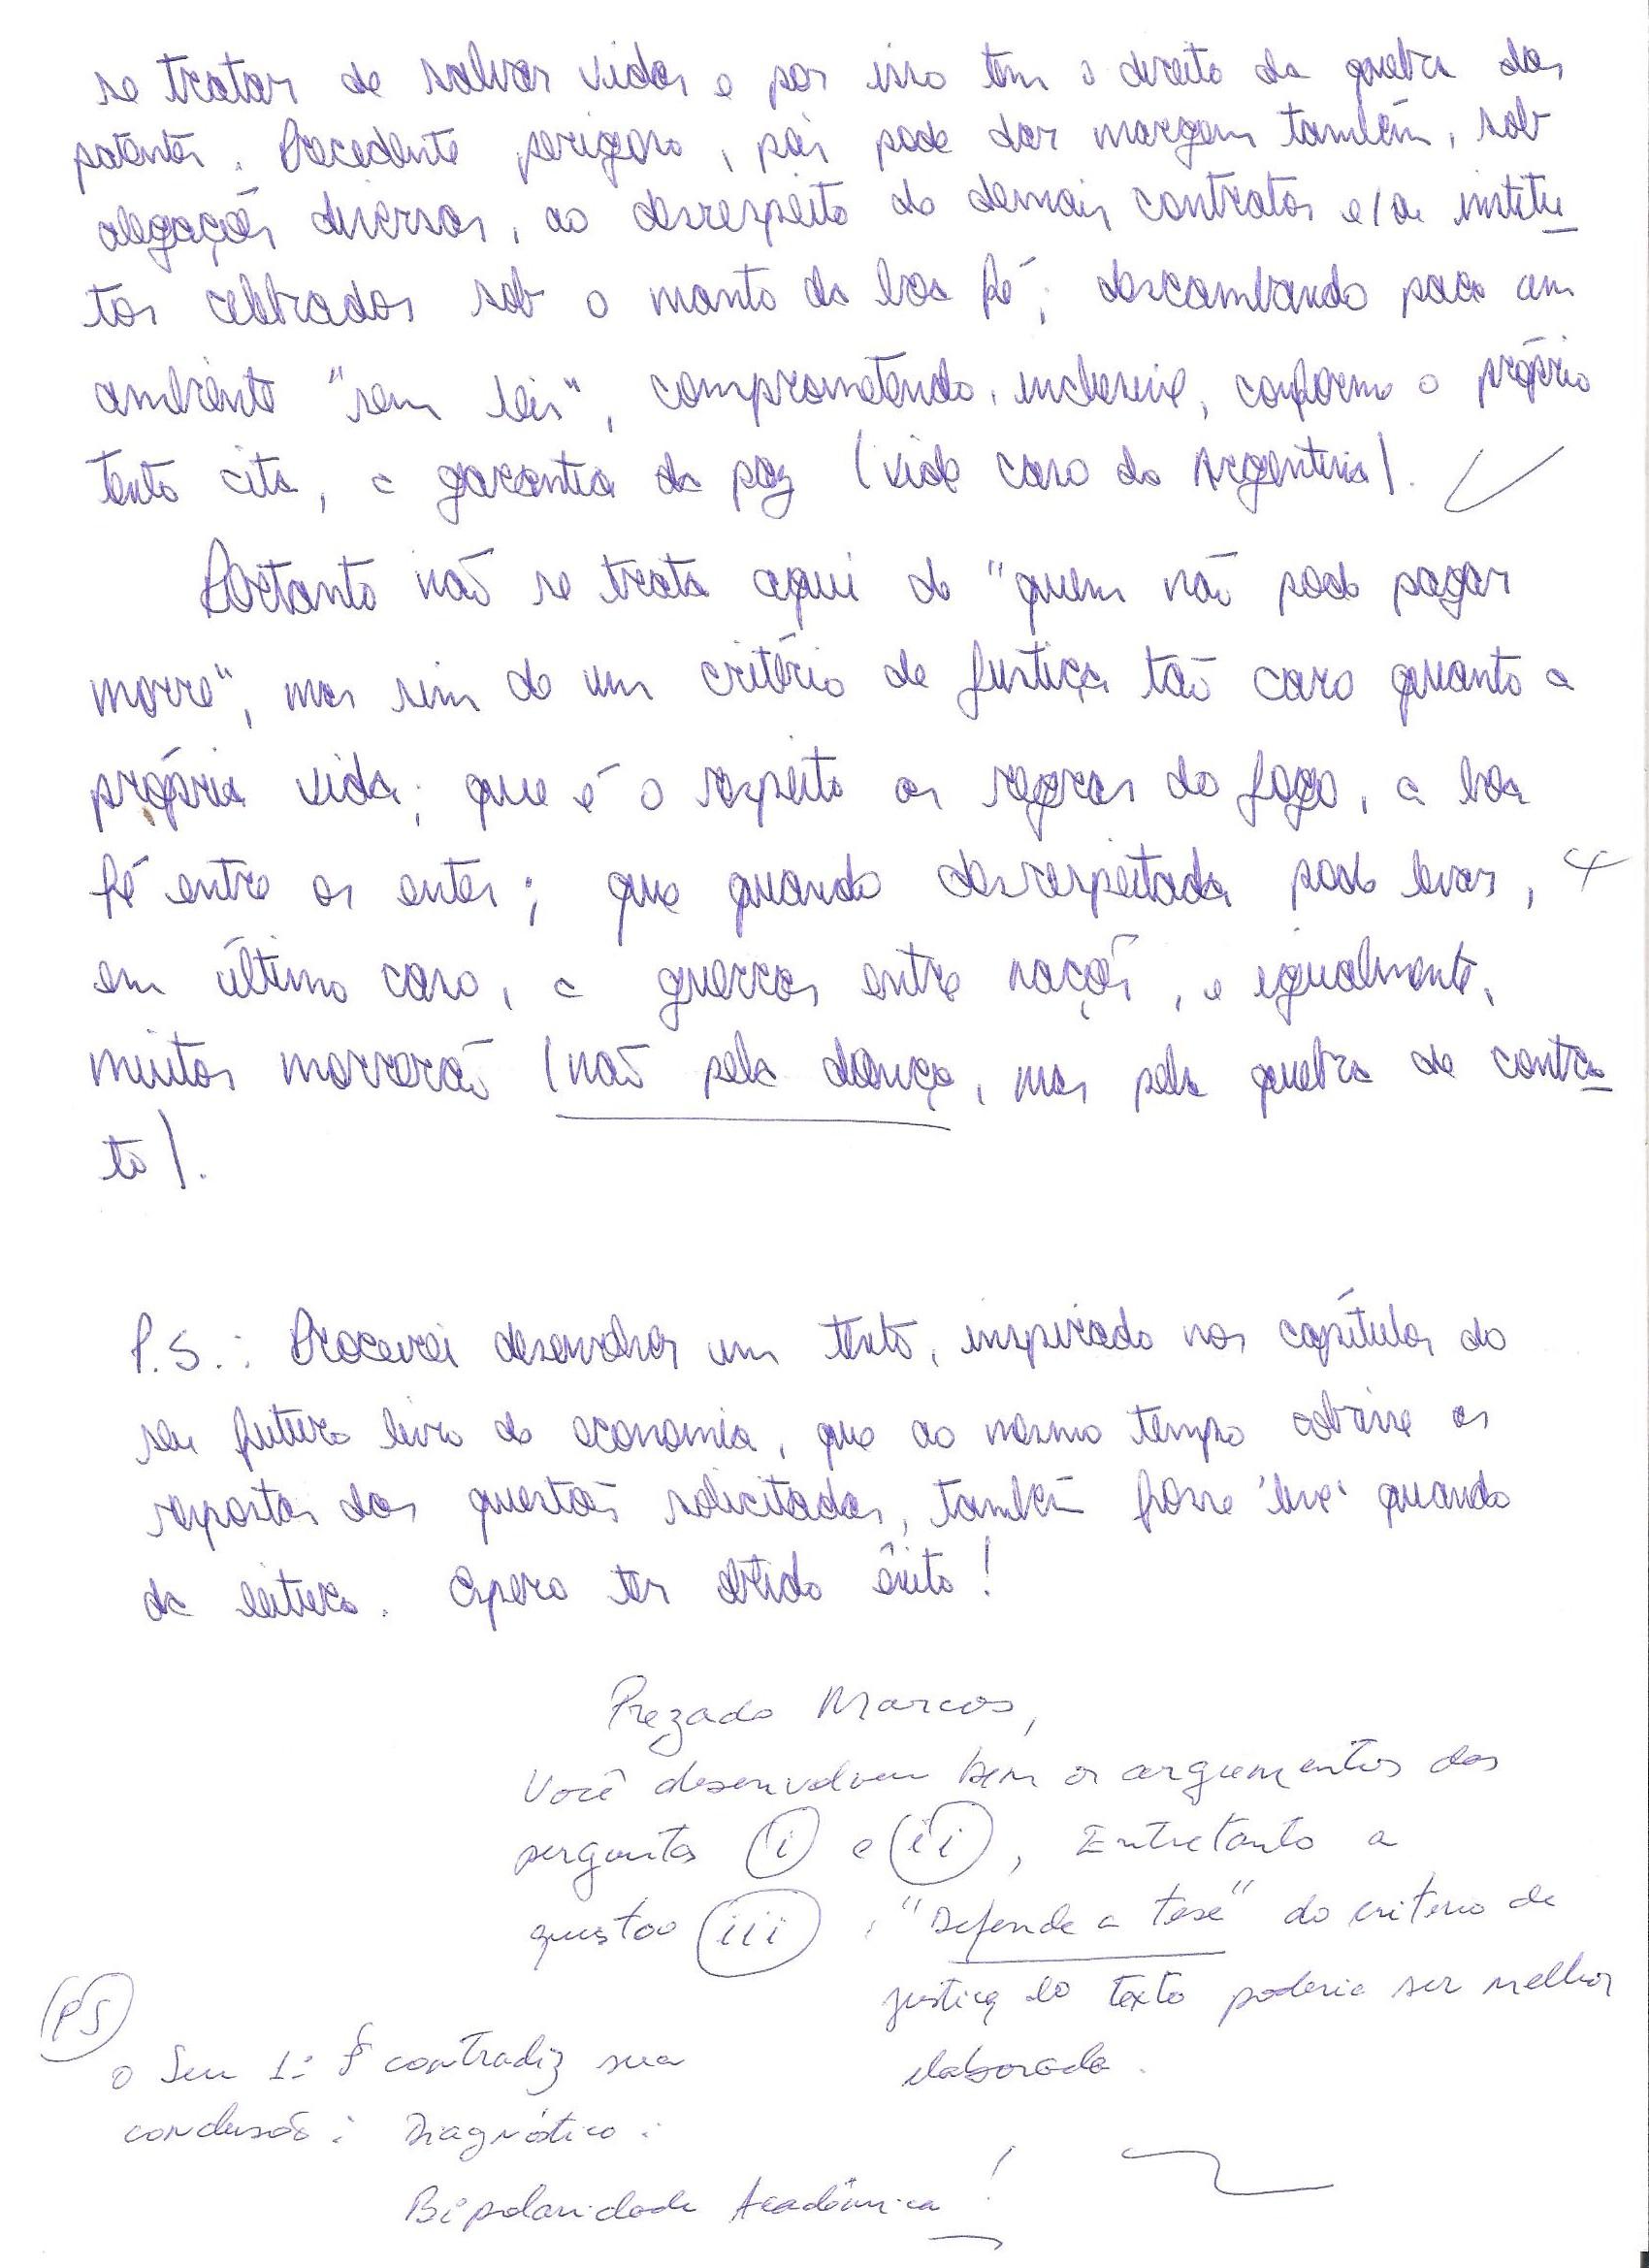 se tratar de salvar vidas e por isso tem o direito da quebra das
patentes. Precedente perigoso, pois pode dar margem também, sob
alegações diversas, ao desrespeito de demais contratos e/ou institu
tos celebrados sob o manto da boa fé; descambando para um
ambiente "sem leis", comprometendo, inclusive, conforme o próprio
texto cita, a garantia da paz (vide caso da Argentina).
Portanto não se trata aqui de "quem não pode pagar
morre", mas sim de um critério de justiça tão caro quanto a
própria vida; que é o respeito as regras do jogo, a boa
fé entre os entes; que quando desrespeitada pode levar,
em último caso, a guerras entre nações, e igualmente,
muitos morrerão (não pela doença, mas pela quebra de contra
to).
P.S.: Procurei desenvolver um texto, inspirado nos capítulos do
seu futuro livro de economia, que ao mesmo tempo cobrisse as
respostas das questões solicitadas, também fosse 'leve' quando
da leitura. Espero ter obtido êxito!
Prezado Marcos,
Você desenvolveu bem os argumentos das
perguntas (i) e (ii), Entretanto a
questão (iii), "Defende a tese" do critério de
justiça do texto poderia ser melhor
elaborada.
PS
o Seu 1º § contradiz sua
conclusão: Diagnóstico:
Bipolaridade Acadêmica!